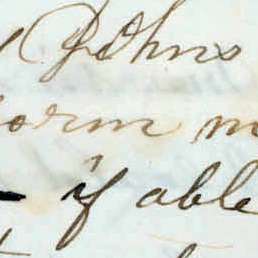 Johns
orm m
if able